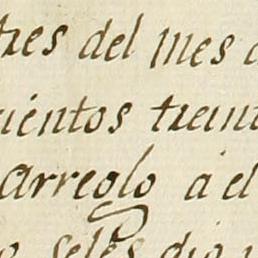 tres del mes d
cientos treint
arreglo à el
seles dio